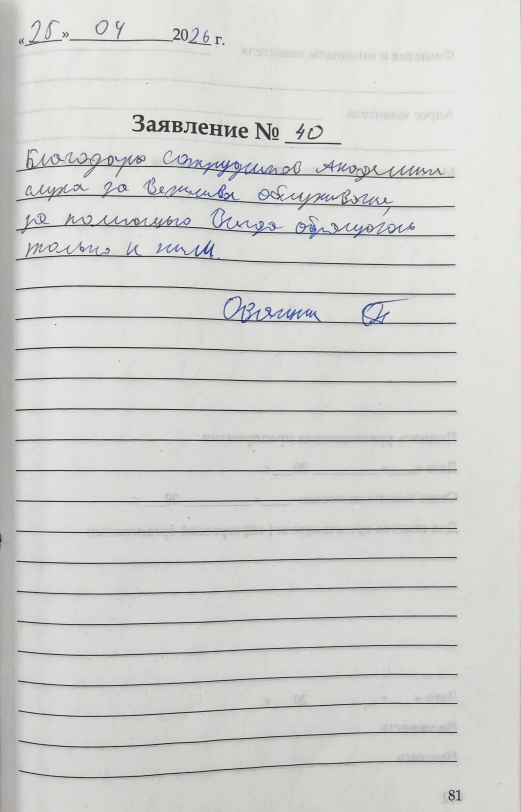 «25» 04 2026 г.
Заявление № 40
Благодарю сотрудников Академии
слуха за вежливое обслуживание,
за помощью Всегда обращаюсь
только к ним
81